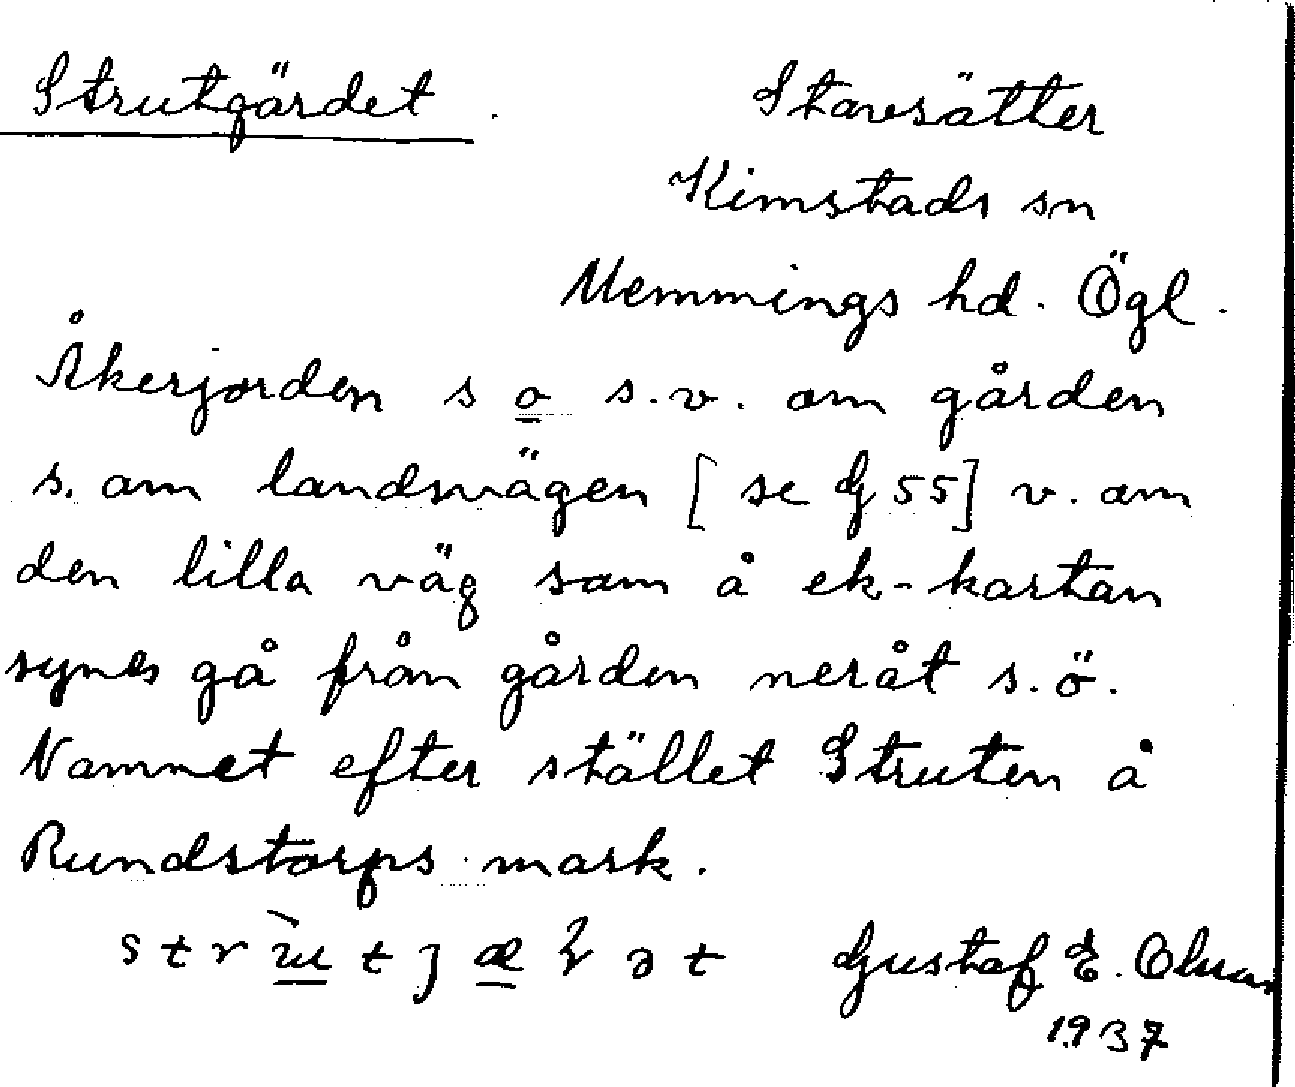 Strutgärdet. Stavsätter
Kimstads sn
Memmings hd. Ögl.
Åkerjorden s o s.v. om gården
s. om landsvägen [se G 55] v. om
den lilla väg som å ek-kartan
synes gå från gården neråt s.ö.
Namnet efter stället Struten å
Rundstorps mark.
Gustaf E.
1937